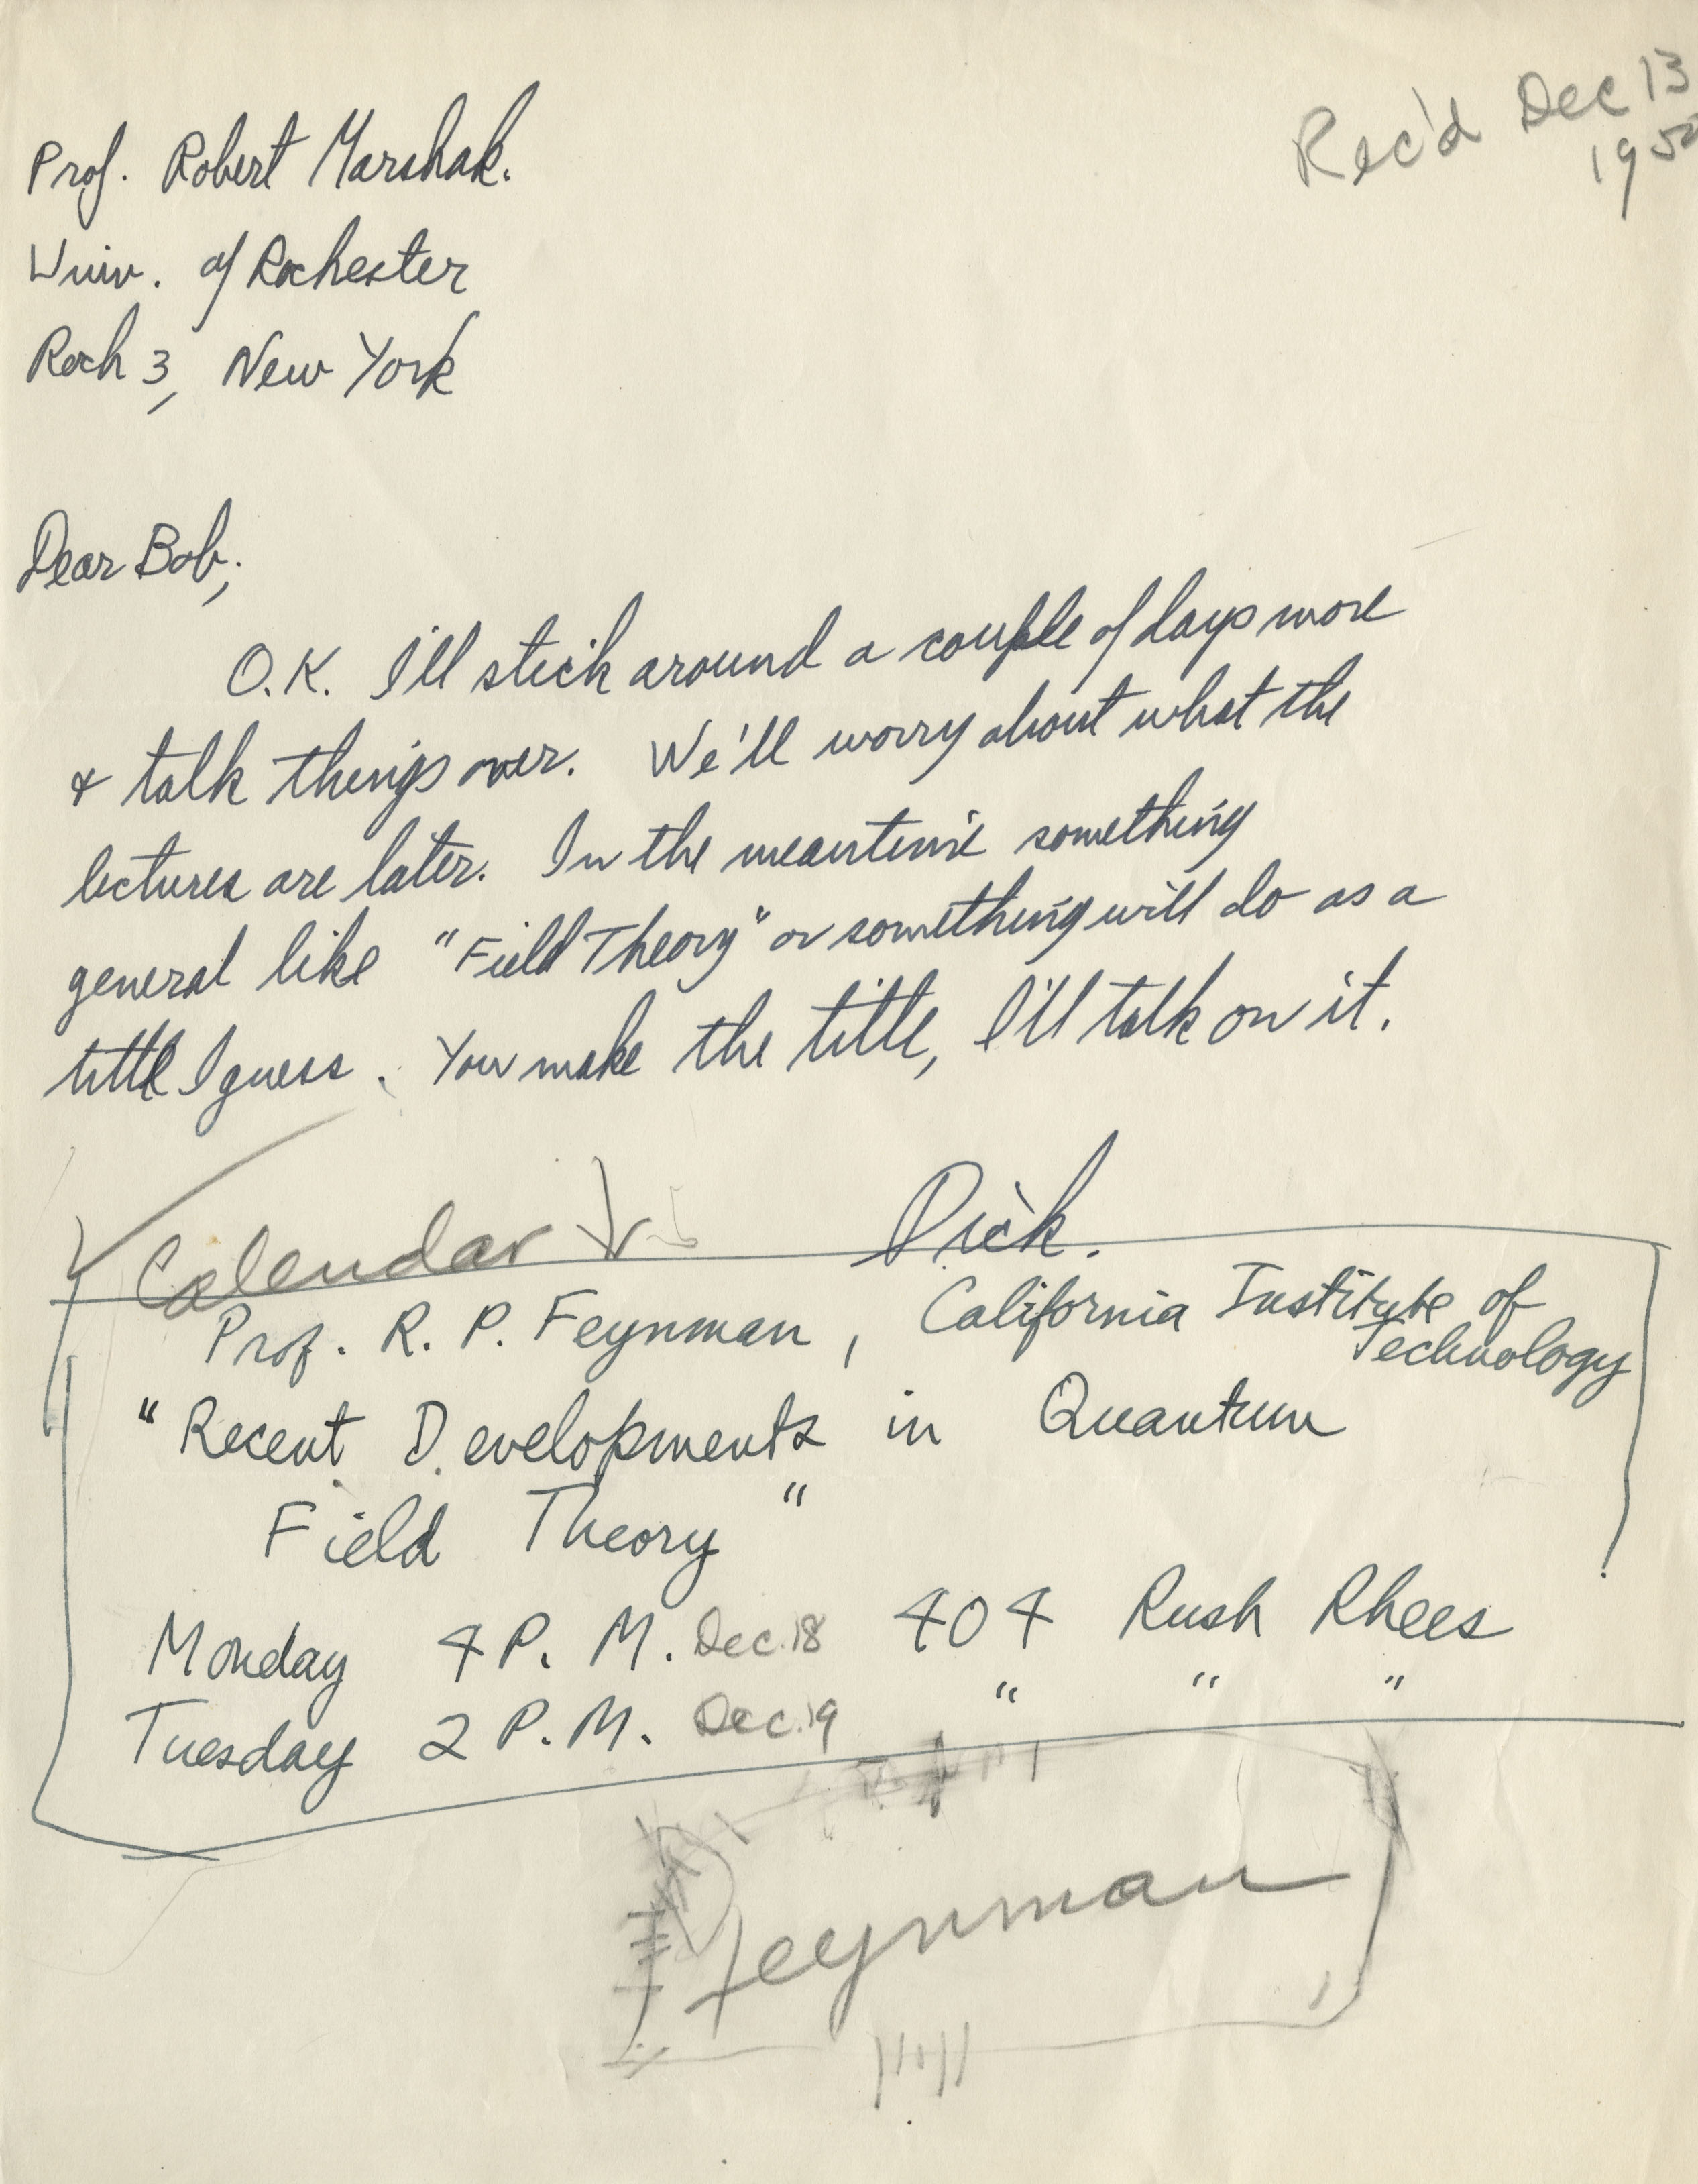 Rec'd Dec 13
1950
Prof. Robert Marshak.
Univ. of Rochester
Roch 3, New York
Dear Bob;
O.K. I'll stick around a couple of days more
& talk things over. We'll worry about what the
lectures are later. In the meantime something
general like "Field Theory" or something will do as a
title I guess. You make the title, I'll talk on it.
Dick.
Calendar
Prof. R. P. Feynman, California Institute of
Technology
"Recent Developments in Quantum
Field Theory"
Monday 4 P. M. Dec. 18 404 Rush Rhees
Tuesday 2 P.M. Dec. 19 " " "
Feynman